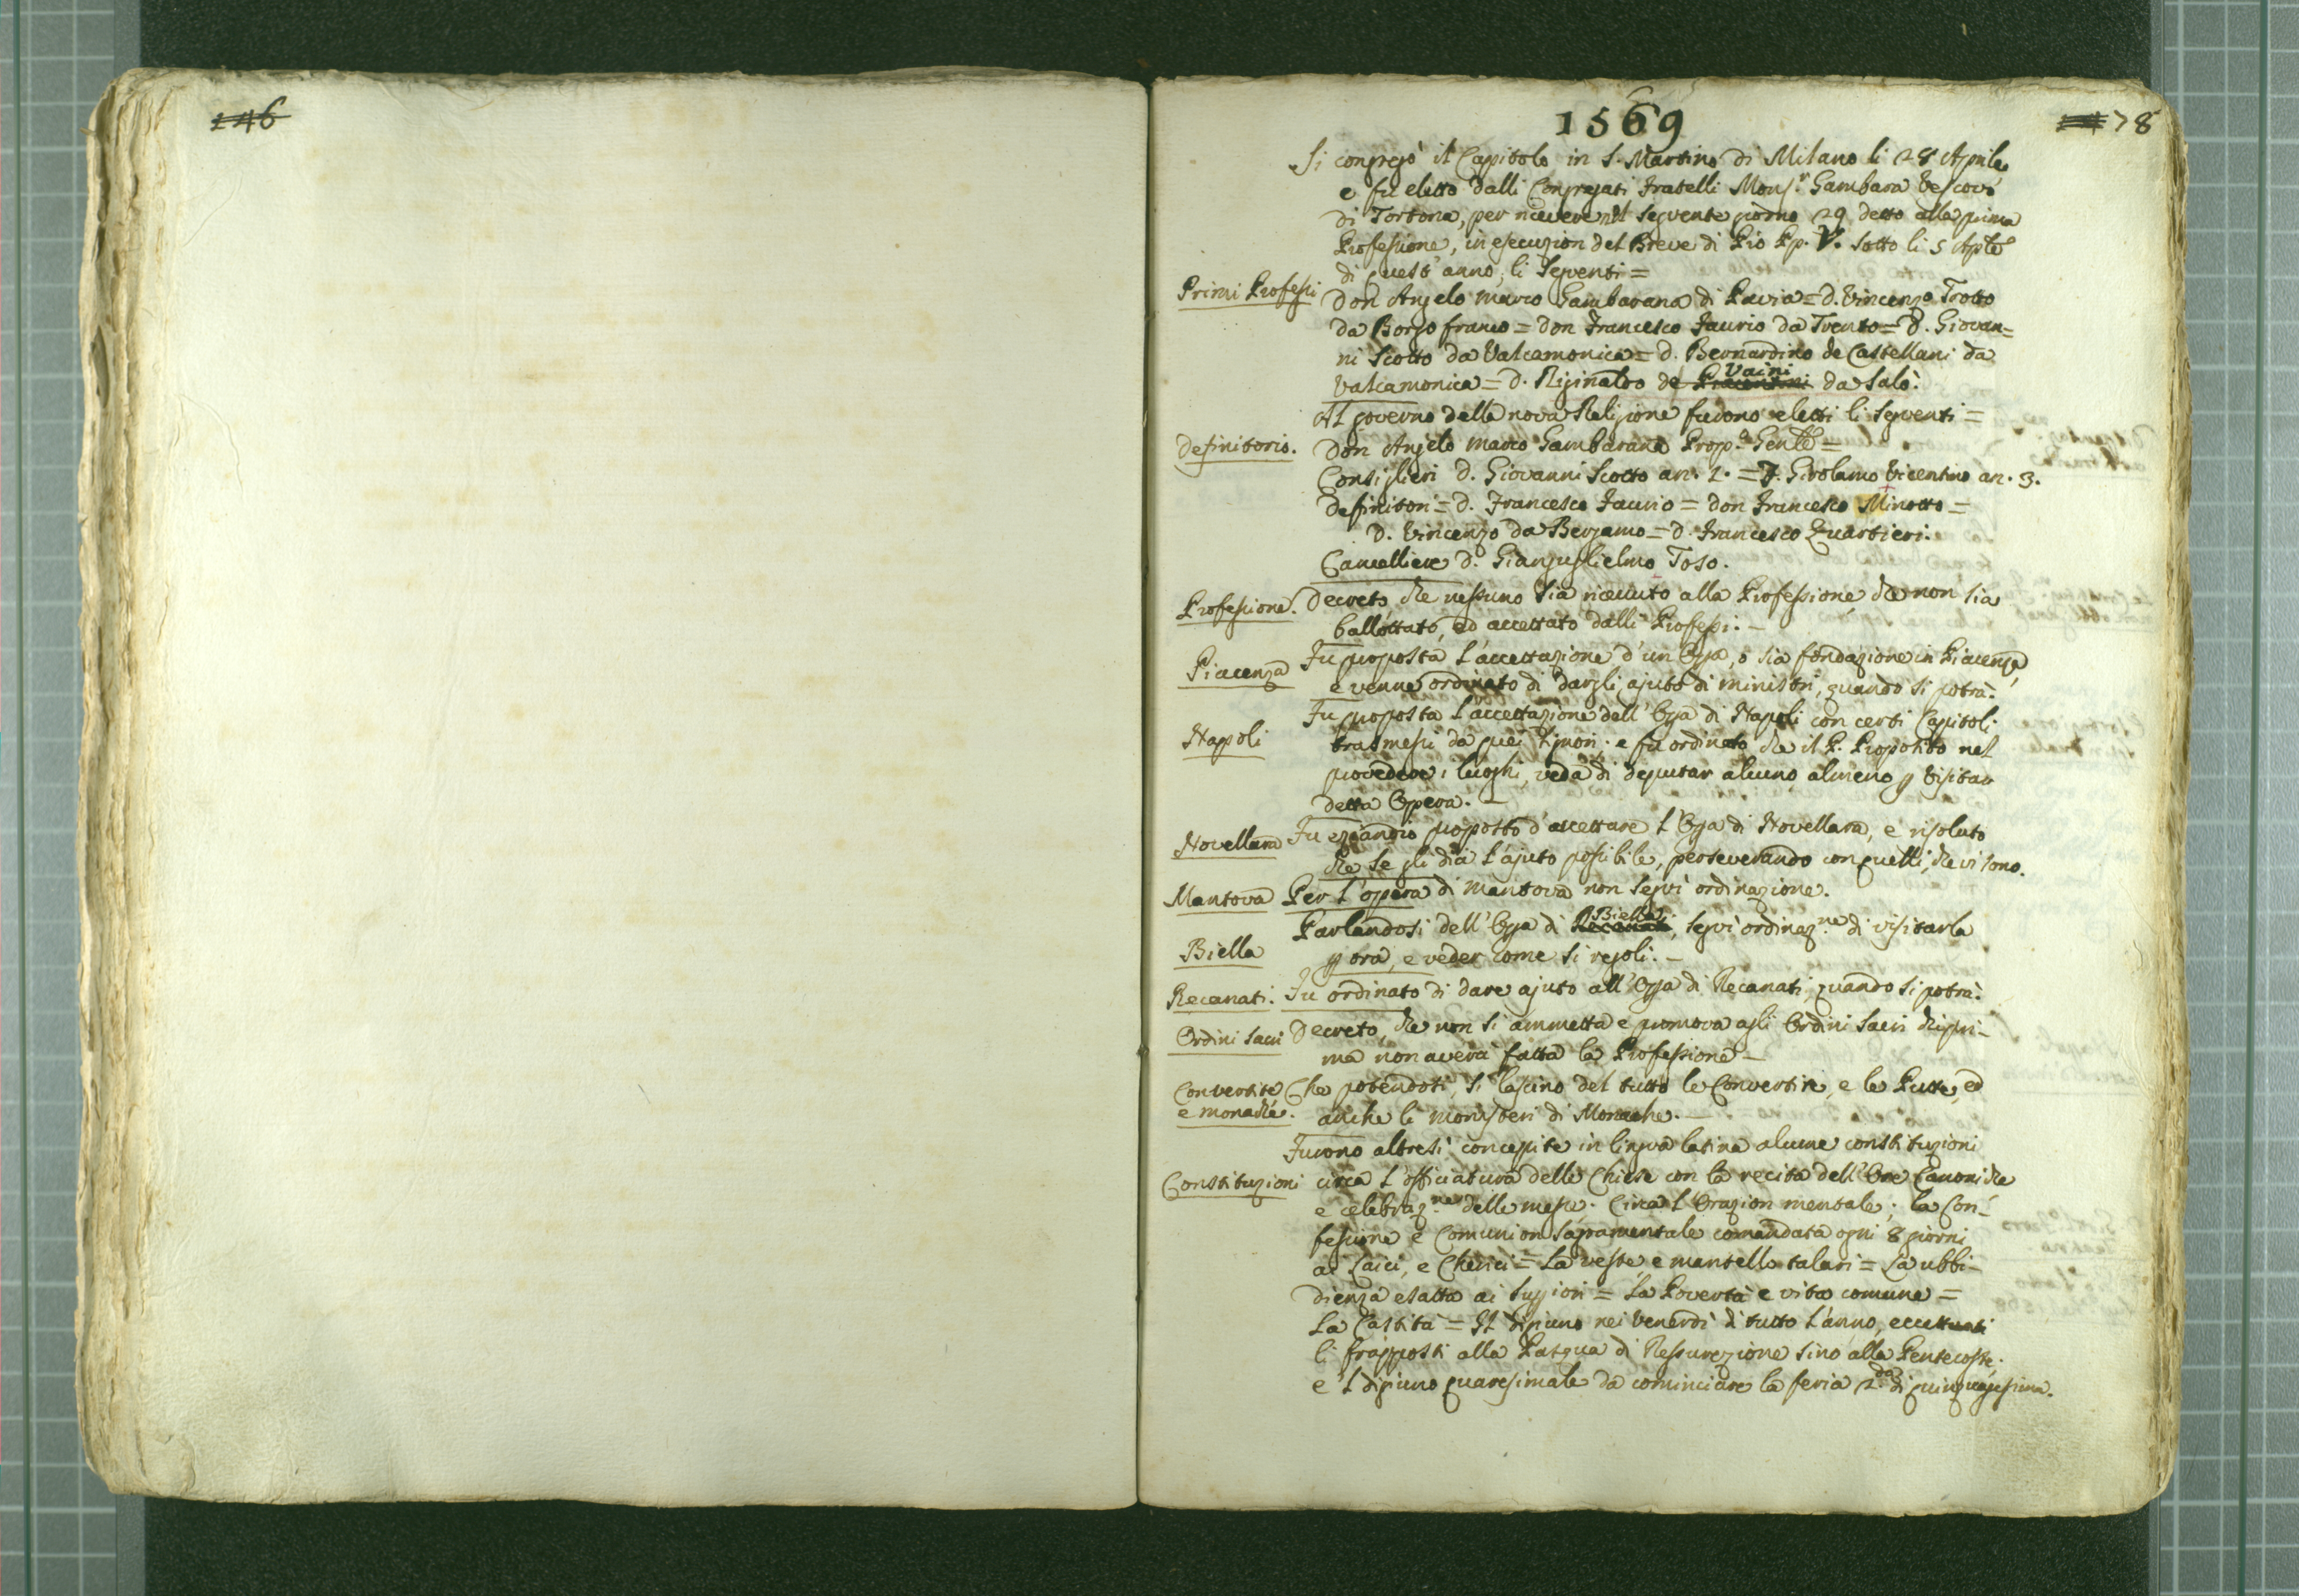 146
1569
78
Si congregò il Capitolo in S. Martino di Milano li 28 Aprile
e fu eletto dalli Congregati Fratelli Mons.r Gambara Vescovo
di Tortona, per ricevere nel seguente giorno 29 detto alla prima
Professione, in esecuzion del Breve di Pio Pp. V. sotto li 5 Aple
di quest' anno, li seguenti =
Primi Professi
Don Angelo Marco Gambarana di Pavia = D. Vincenzo Trotto
da Borgo franco = Don Francesco Faurio da Trento = D. Giovan=
ni Scotto da Valcamonica = D. Bernardino de Castellani da
Valcamonica = D. Riginaldo de Vaini da Salò.
Al governo della nova Religione furono eletti li seguenti =
Definitorio.
Don Angelo Marco Gambarana Prop.o Genle =
Consiglieri D. Giovanni Scotto an. 2. = F. Girolamo Vicentino an. 3.
Definitori = D. Francesco Faurio = Don Francesco Minotto =
D. Vincenzo da Bergamo = D. Francesco Quartieri.
Cancelliere D. Gianguglielmo Toso.
Professione.
Decreto, che nessuno sia ricevuto alla Professione che non sia
ballottato, ed accettato dalli Professi. -
Piacenza
Fu proposta l'accettazione d'un Opa, o sia fondazione in Piacenza,
e venne ordinato di dargli ajuto di ministri, quando si potrà.
Napoli
Fu proposta l'accettazione dell' Opa di Napoli con certi Capitoli
trasmessi da quei Signori. e fu ordinato che il P. Proposito nel
provedere i luoghi, veda di deputar alcuno almeno p visitar
detta Opera. -
Novellara
Fu eziandio proposto d'accettare l' Opa di Novellara, e risoluto
che se gli dia l'ajuto possibile, perseverando con quelli, che vi sono.
Mantova
Per l'opera di Mantova non seguì ordinazione.
Biella
Parlandosi dell' Opa di Recanati Biella, seguì ordinaz.ne di visitarla
p ora, e veder come si regoli. -
Recanati.
Fu ordinato di dare ajuto all' Opa di Recanati, quando si potrà.
Ordini Sacri
Decreto, che non si ammetta e promova agli Ordini Sacri chi pri-
ma non averà fatta la Professione -
Convertite
e monache.
Che potendosi, si lascino del tutto le Convertite, e le Putte, ed
anche li monisteri di Monache. -
Furono altresì concepite in lingua latina alcune constituzioni
Constituzioni
circa l'officiatura delle Chiese con la recita dell' Ore Canoniche
e celebraz.ne delle messe. Circa l'Orazion mentale; la Con-
fessione e Comunion Sagramentale comandata ogni 8 giorni
ai Laici, e Cherici = La veste, e mantello talari = La ubbi-
dienza esatta ai Suppiori = La Povertà e vita comune =
La Castità = Il digiuno nei Venerdì di tutto l'anno, eccettuati
li frapposti alla Pasqua di Ressurezione sino alla Pentecoste;
e 'l digiuno quaresimale da cominciare la feria 2.da di quinquagesima.